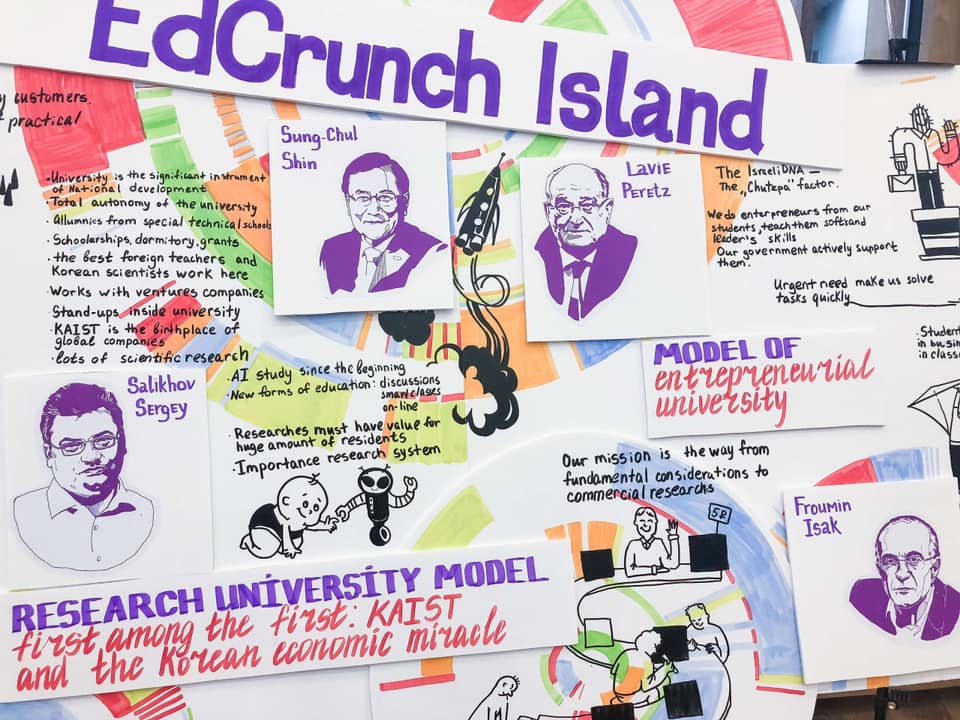 EdCrunch Island
y customers.
f practical
Sung-Chul
Shin
Lavie
Peretz
University is the significant instrument
of National development
Total autonomy of the university
Allumnies from special technical schools
Schoolarships, dormitory, grants
the best foreign teachers and
Korean scientists work here
Works with ventures companies
Stand-ups inside university
KAIST is the birthplace of
global companies
lots of scientific research
The Israeli DNA –
The „Chutzpa" factor.
We do enterpreneurs from our
students, teach them softs and
leader's skills
Our government actively support
them.
Urgent need make us solve
tasks quickly
Student
in busin
in class
MODEL OF
entrepreneurial
university
Salikhov
Sergey
AI study since the beginning
New forms of education: discussions
smart classes
on-line
Researches must have value for
huge amount of residents
Importance research system
Our mission is the way from
fundamental considerations to
commercial researchs
Froumin
Isak
RESEARCH UNIVERSITY MODEL
first among the first: KAIST
and the Korean economic miracle